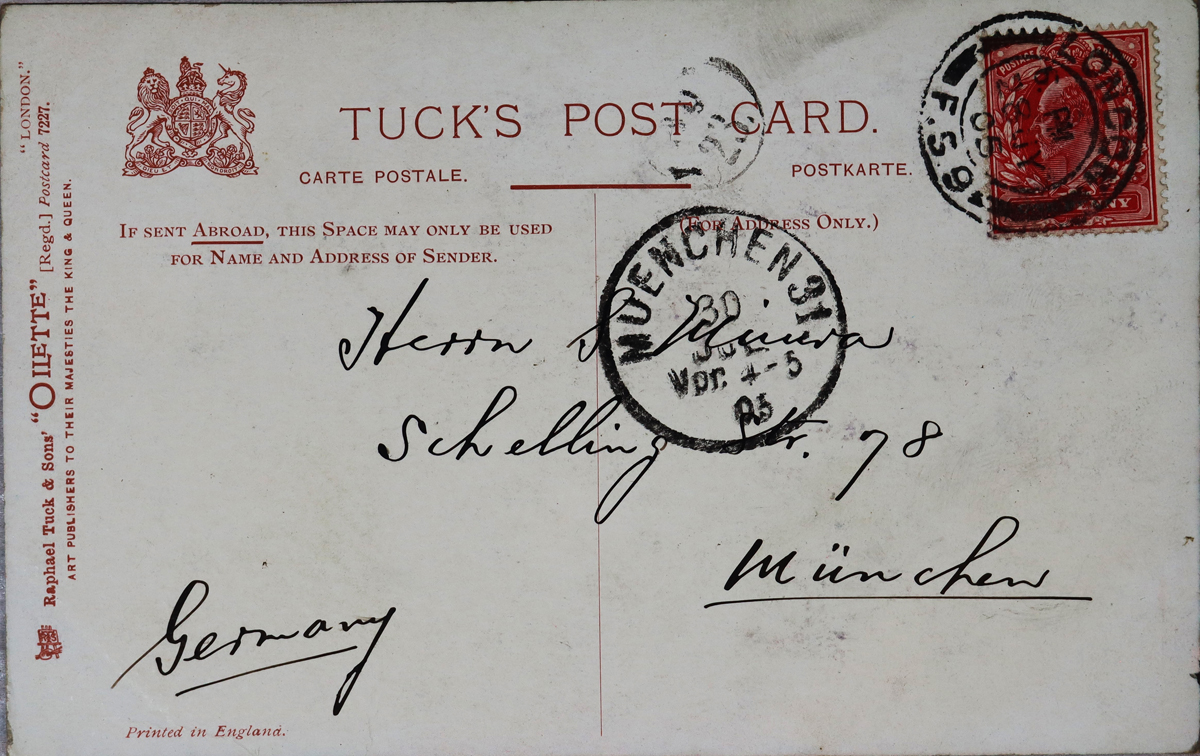 TUCK'S POST CARD.
CARTE POSTALE.
POSTKARTE.
IF SENT ABROAD, THIS SPACE MAY ONLY BE USED
FOR NAME AND ADDRESS OF SENDER.
(FOR ADDRESS ONLY.)
"LONDON."
Raphael Tuck & Sons' "OILETTE" [Regd.] Postcard 7227.
ART PUBLISHERS TO THEIR MAJESTIES THE KING & QUEEN.
LONDON
F.S.6
05
POSTAGE
MUENCHEN 31
30
JUL
Vor. 4-5
05
Herrn S Miura
Schelling Str. 78
München
Germany
Printed in England.